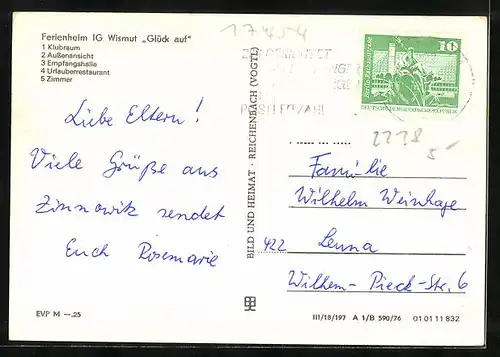 Ferienheim IG Wismut „Glück auf"
1 Klubraum
2 Außenansicht
3 Empfangshalle
4 Urlauberrestaurant
5 Zimmer
Liebe Eltern!
Viele Grüße aus
Zinnowitz sendet
Euch Rosemarie
EVP M —,25
BILD UND HEIMAT · REICHENBACH (VOGTL)
17454
10
DEUTSCHE DEMOKRATISCHE REPUBLIK
POSTLEITZAHL
2238
5-
Familie
Wilhelm
422 Leuna
Wilhelm-Pieck-Str. 6
III/18/197 A 1/B 590/76 01 01 11 832